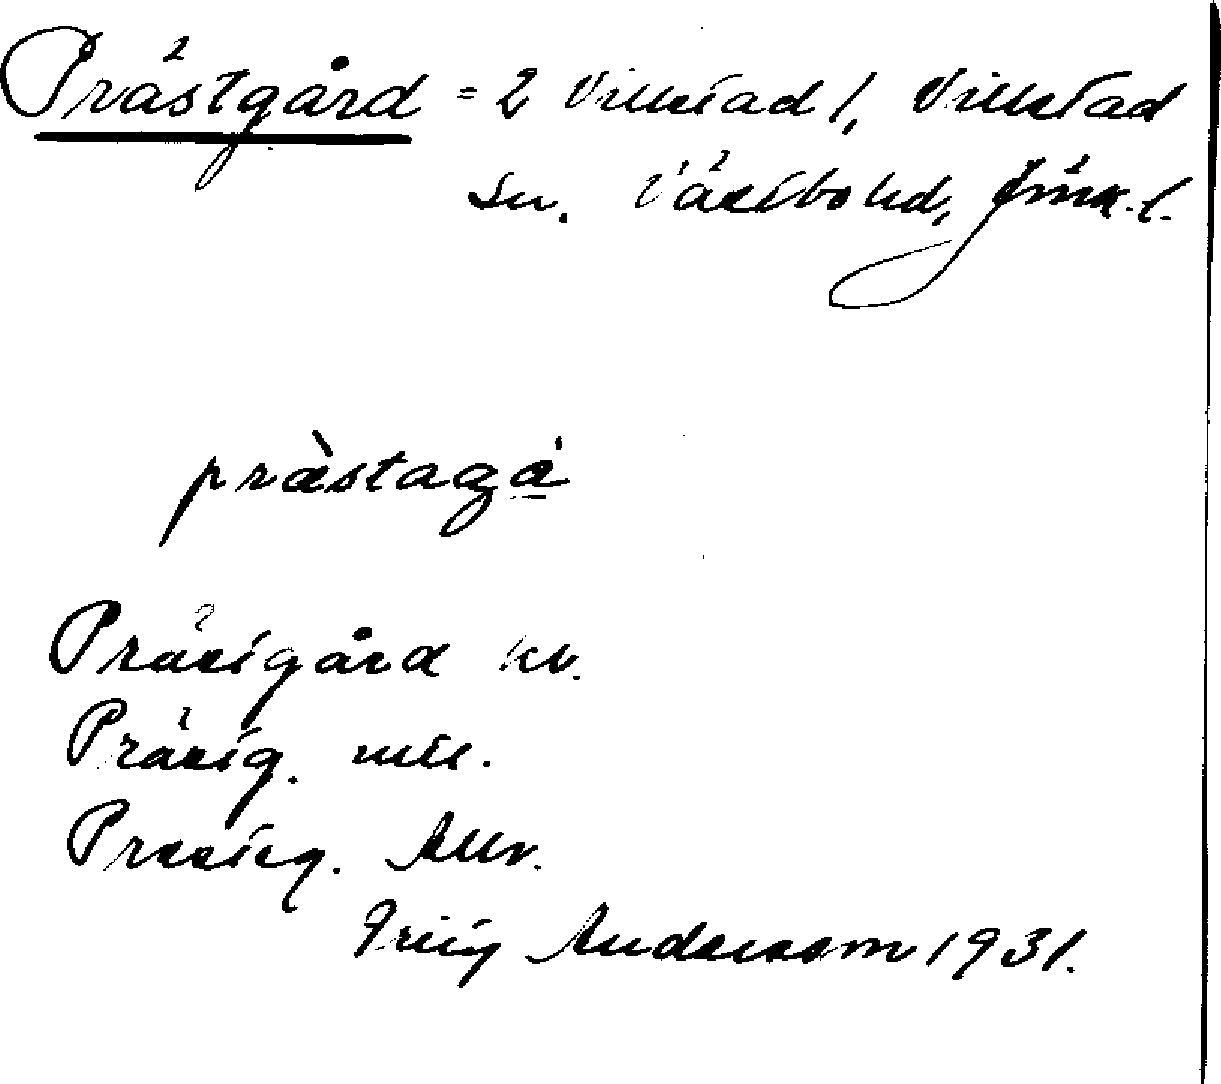 Prästgård = 2 Villstad 1, Villstad
sn. Västbo hd, Jönk. l.
pràstagȧ
Prästgård kv.
Prästg. mtl.
Prästeg.
Andersson 1931.